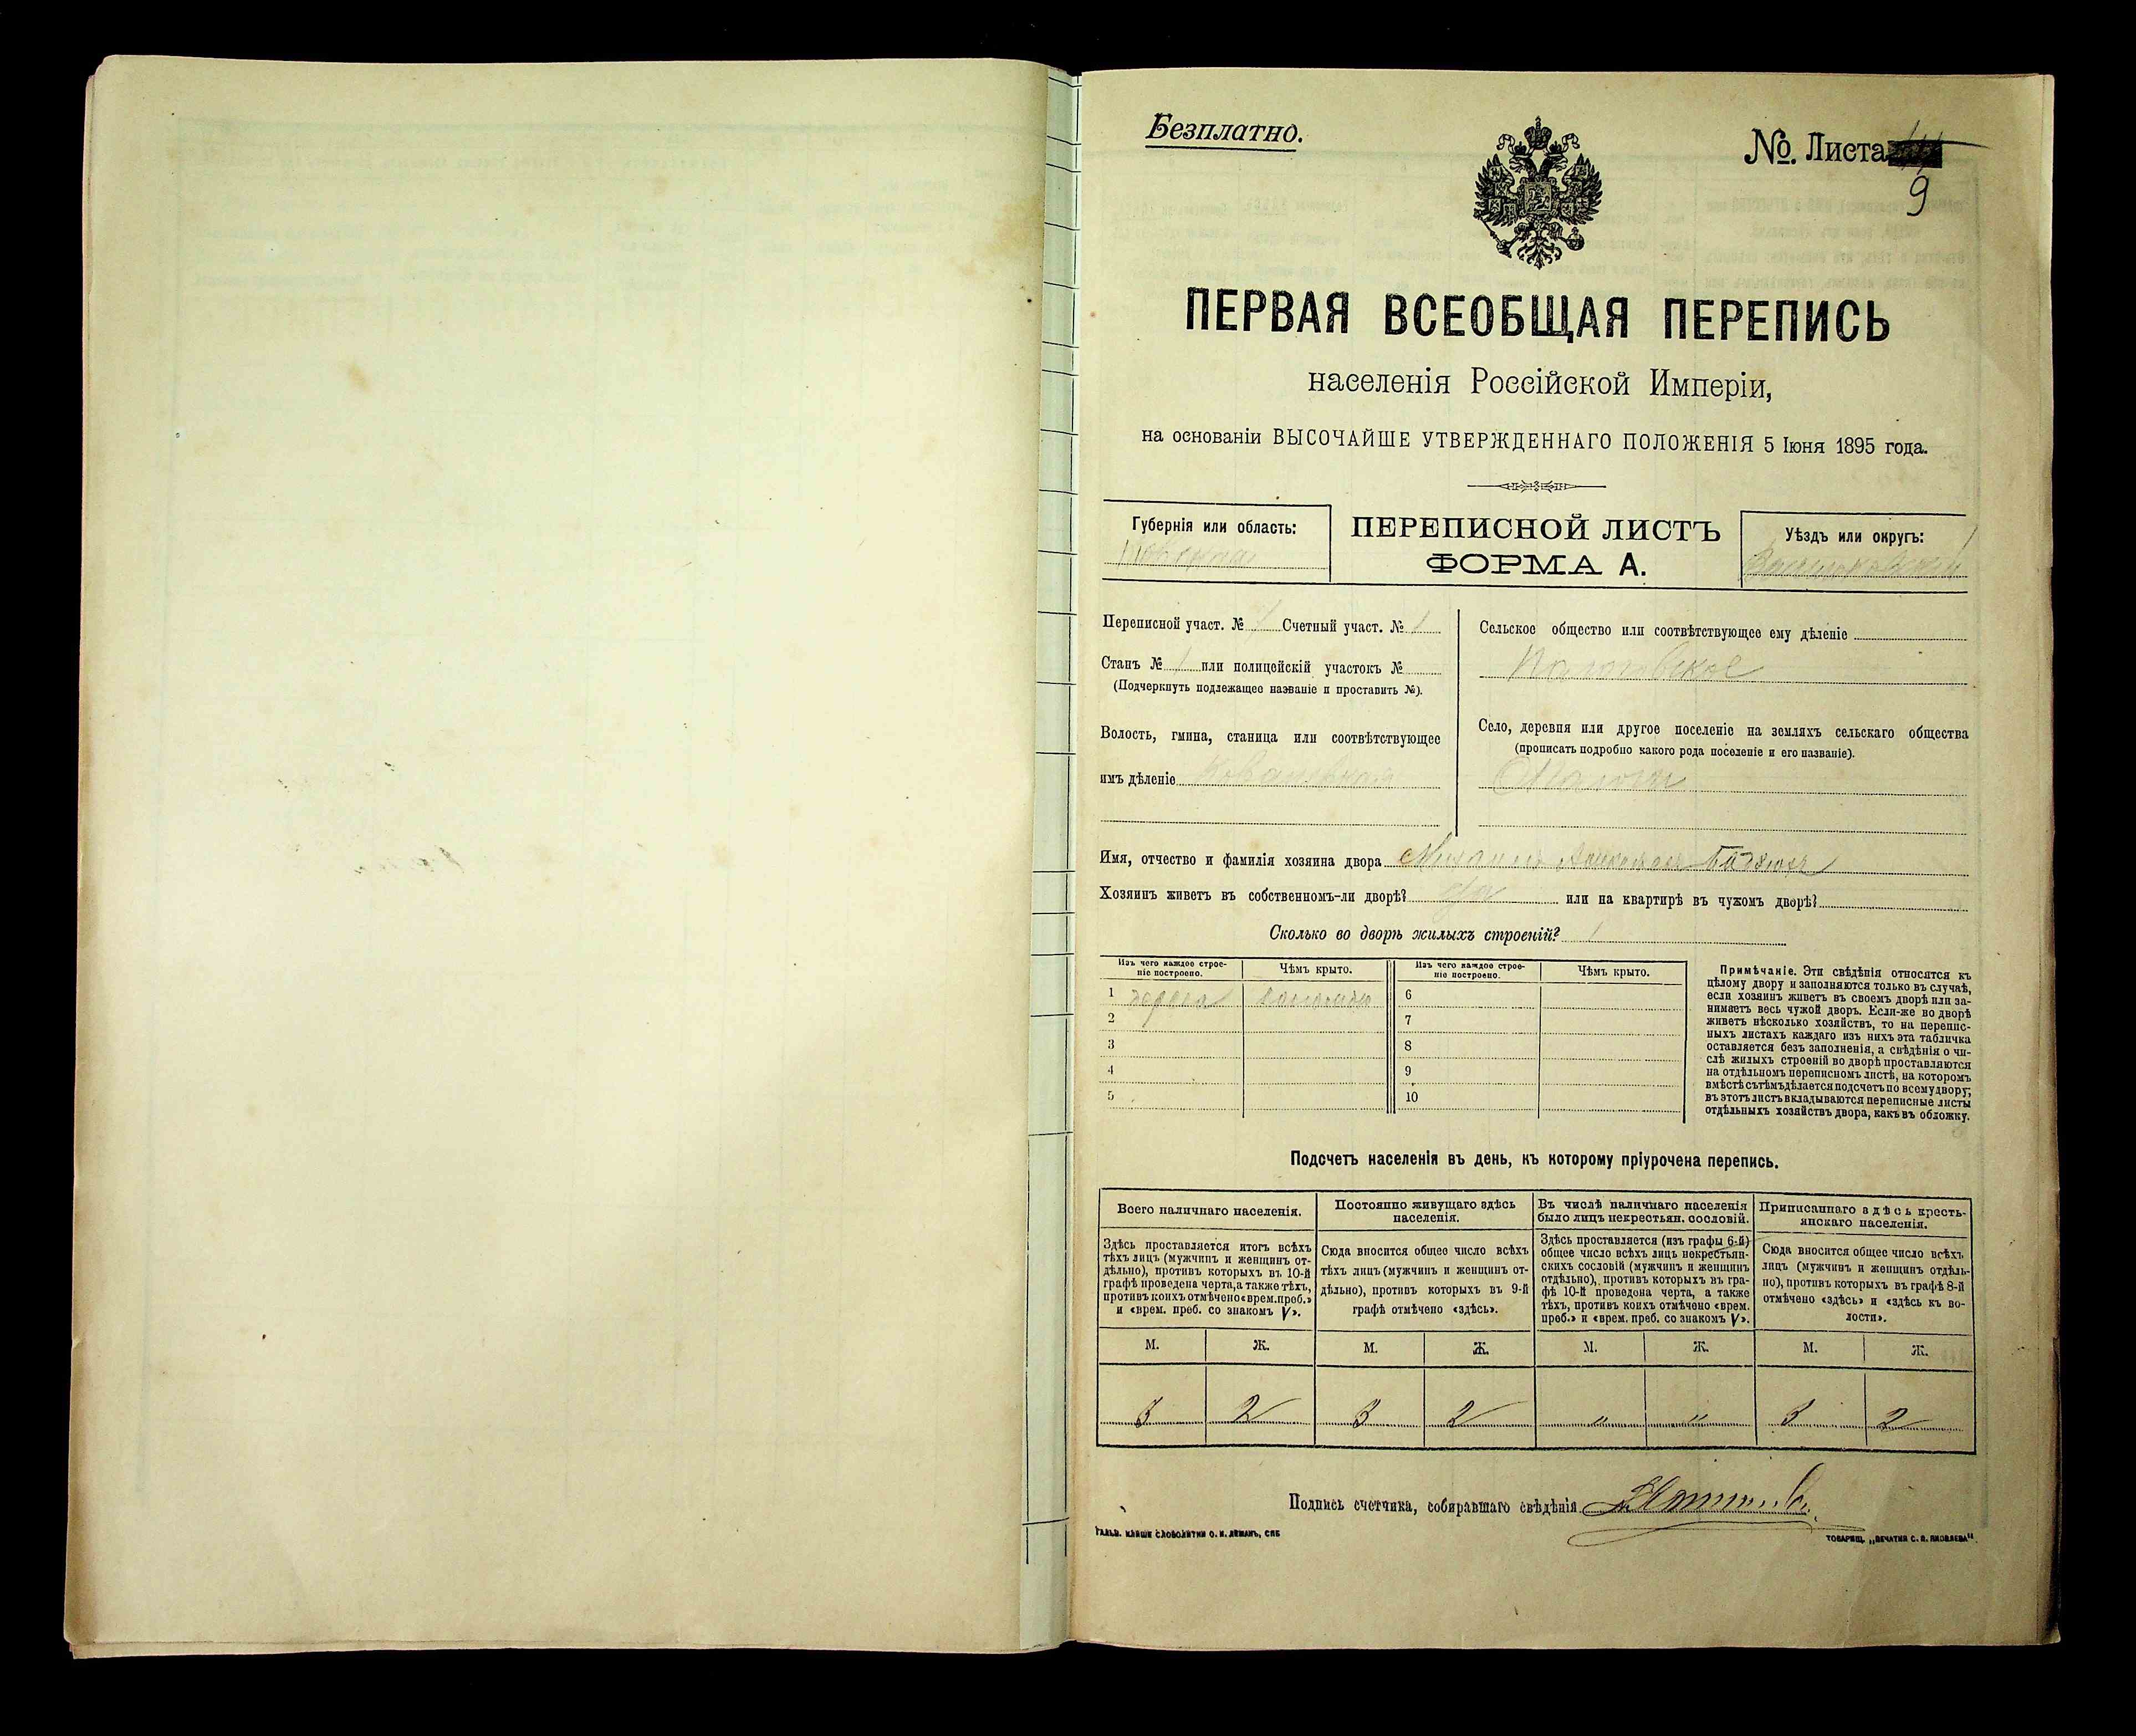 Безплатно.
№. Листа
9
ПЕРВАЯ ВСЕОБЩАЯ ПЕРЕПИСЬ
населенія Россійской Имперіи,
на основаніи ВЫСОЧАЙШЕ УТВЕРЖДЕННАГО ПОЛОЖЕНІЯ 5 Іюня 1895 года.
Губернія или область:
ПЕРЕПИСНОЙ ЛИСТЪ
ФОРМА А.
Уѣздъ или округъ:
Переписной участ. № 1 Счетный участ. № 1
Станъ № 1 или полицейскій участокъ №
(Подчеркнуть подлежащее названіе и проставить №).
Волость, гмина, станица или соотвѣтствующее
имъ дѣленіе
Сельское общество или соотвѣтствующее ему дѣленіе
Село, деревня или другое поселеніе на земляхъ сельскаго общества
(прописать подробно какого рода поселеніе и его названіе).
Имя, отчество и фамилія хозяина двора
Хозяинъ живетъ въ собственномъ-ли дворѣ? или на квартирѣ въ чужомъ дворѣ?
Сколько во дворѣ жилыхъ строеній? 1
Изъ чего каждое строе-
ніе построено.
Чѣмъ крыто.
Изъ чего каждое строе-
ніе построено.
Чѣмъ крыто.
1
2
3
4
5
6
7
8
9
10
Примѣчаніе. Эти свѣдѣнія относятся къ
цѣлому двору и заполняются только въ случаѣ,
если хозяинъ живетъ въ своемъ дворѣ или за-
нимаетъ весь чужой дворъ. Если-же во дворѣ
живетъ нѣсколько хозяйствъ, то на перепис-
ныхъ листахъ каждаго изъ нихъ эта табличка
оставляется безъ заполненія, а свѣдѣнія о чи-
слѣ жилыхъ строеній во дворѣ проставляются
на отдѣльномъ переписномъ листѣ, на которомъ
вмѣстѣ съ тѣмъ дѣлается подсчетъ по всему двору;
въ этотъ листъ вкладываются переписные листы
отдѣльныхъ хозяйствъ двора, какъ въ обложку.
Подсчетъ населенія въ день, къ которому пріурочена перепись.
Всего наличнаго населенія.
Здѣсь проставляется итогъ всѣхъ
тѣхъ лицъ (мужчинъ и женщинъ от-
дѣльно), противъ которыхъ въ 10-й
графѣ проведена черта, а также тѣхъ,
противъ коихъ отмѣчено «врем. преб.»
и «врем. преб. со знакомъ V».
Постоянно живущаго здѣсь
населенія.
Сюда вносится общее число всѣхъ
тѣхъ лицъ (мужчинъ и женщинъ от-
дѣльно), противъ которыхъ въ 9-й
графѣ отмѣчено «здѣсь».
Въ числѣ наличнаго населенія
было лицъ некрестьян. сословій.
Здѣсь проставляется (изъ графы 6-й)
общее число всѣхъ лицъ некрестьян-
скихъ сословій (мужчинъ и женщинъ
отдѣльно), противъ которыхъ въ гра-
фѣ 10-й проведена черта, а также
тѣхъ, противъ коихъ отмѣчено «врем.
преб.» и «врем. преб. со знакомъ V».
Приписаннаго здѣсь кресть-
янскаго населенія.
Сюда вносится общее число всѣхъ
лицъ (мужчинъ и женщинъ отдѣль-
но), противъ которыхъ въ графѣ 8-й
отмѣчено «здѣсь» и «здѣсь къ во-
лости».
М. Ж. М. Ж. М. Ж. М. Ж.
3 2 3 2 „ „ 3 2
Подпись счетчика, собиравшаго свѣдѣнія
ТОВАРИЩ. „ПЕЧАТНЯ С. П. ЯКОВЛЕВА“